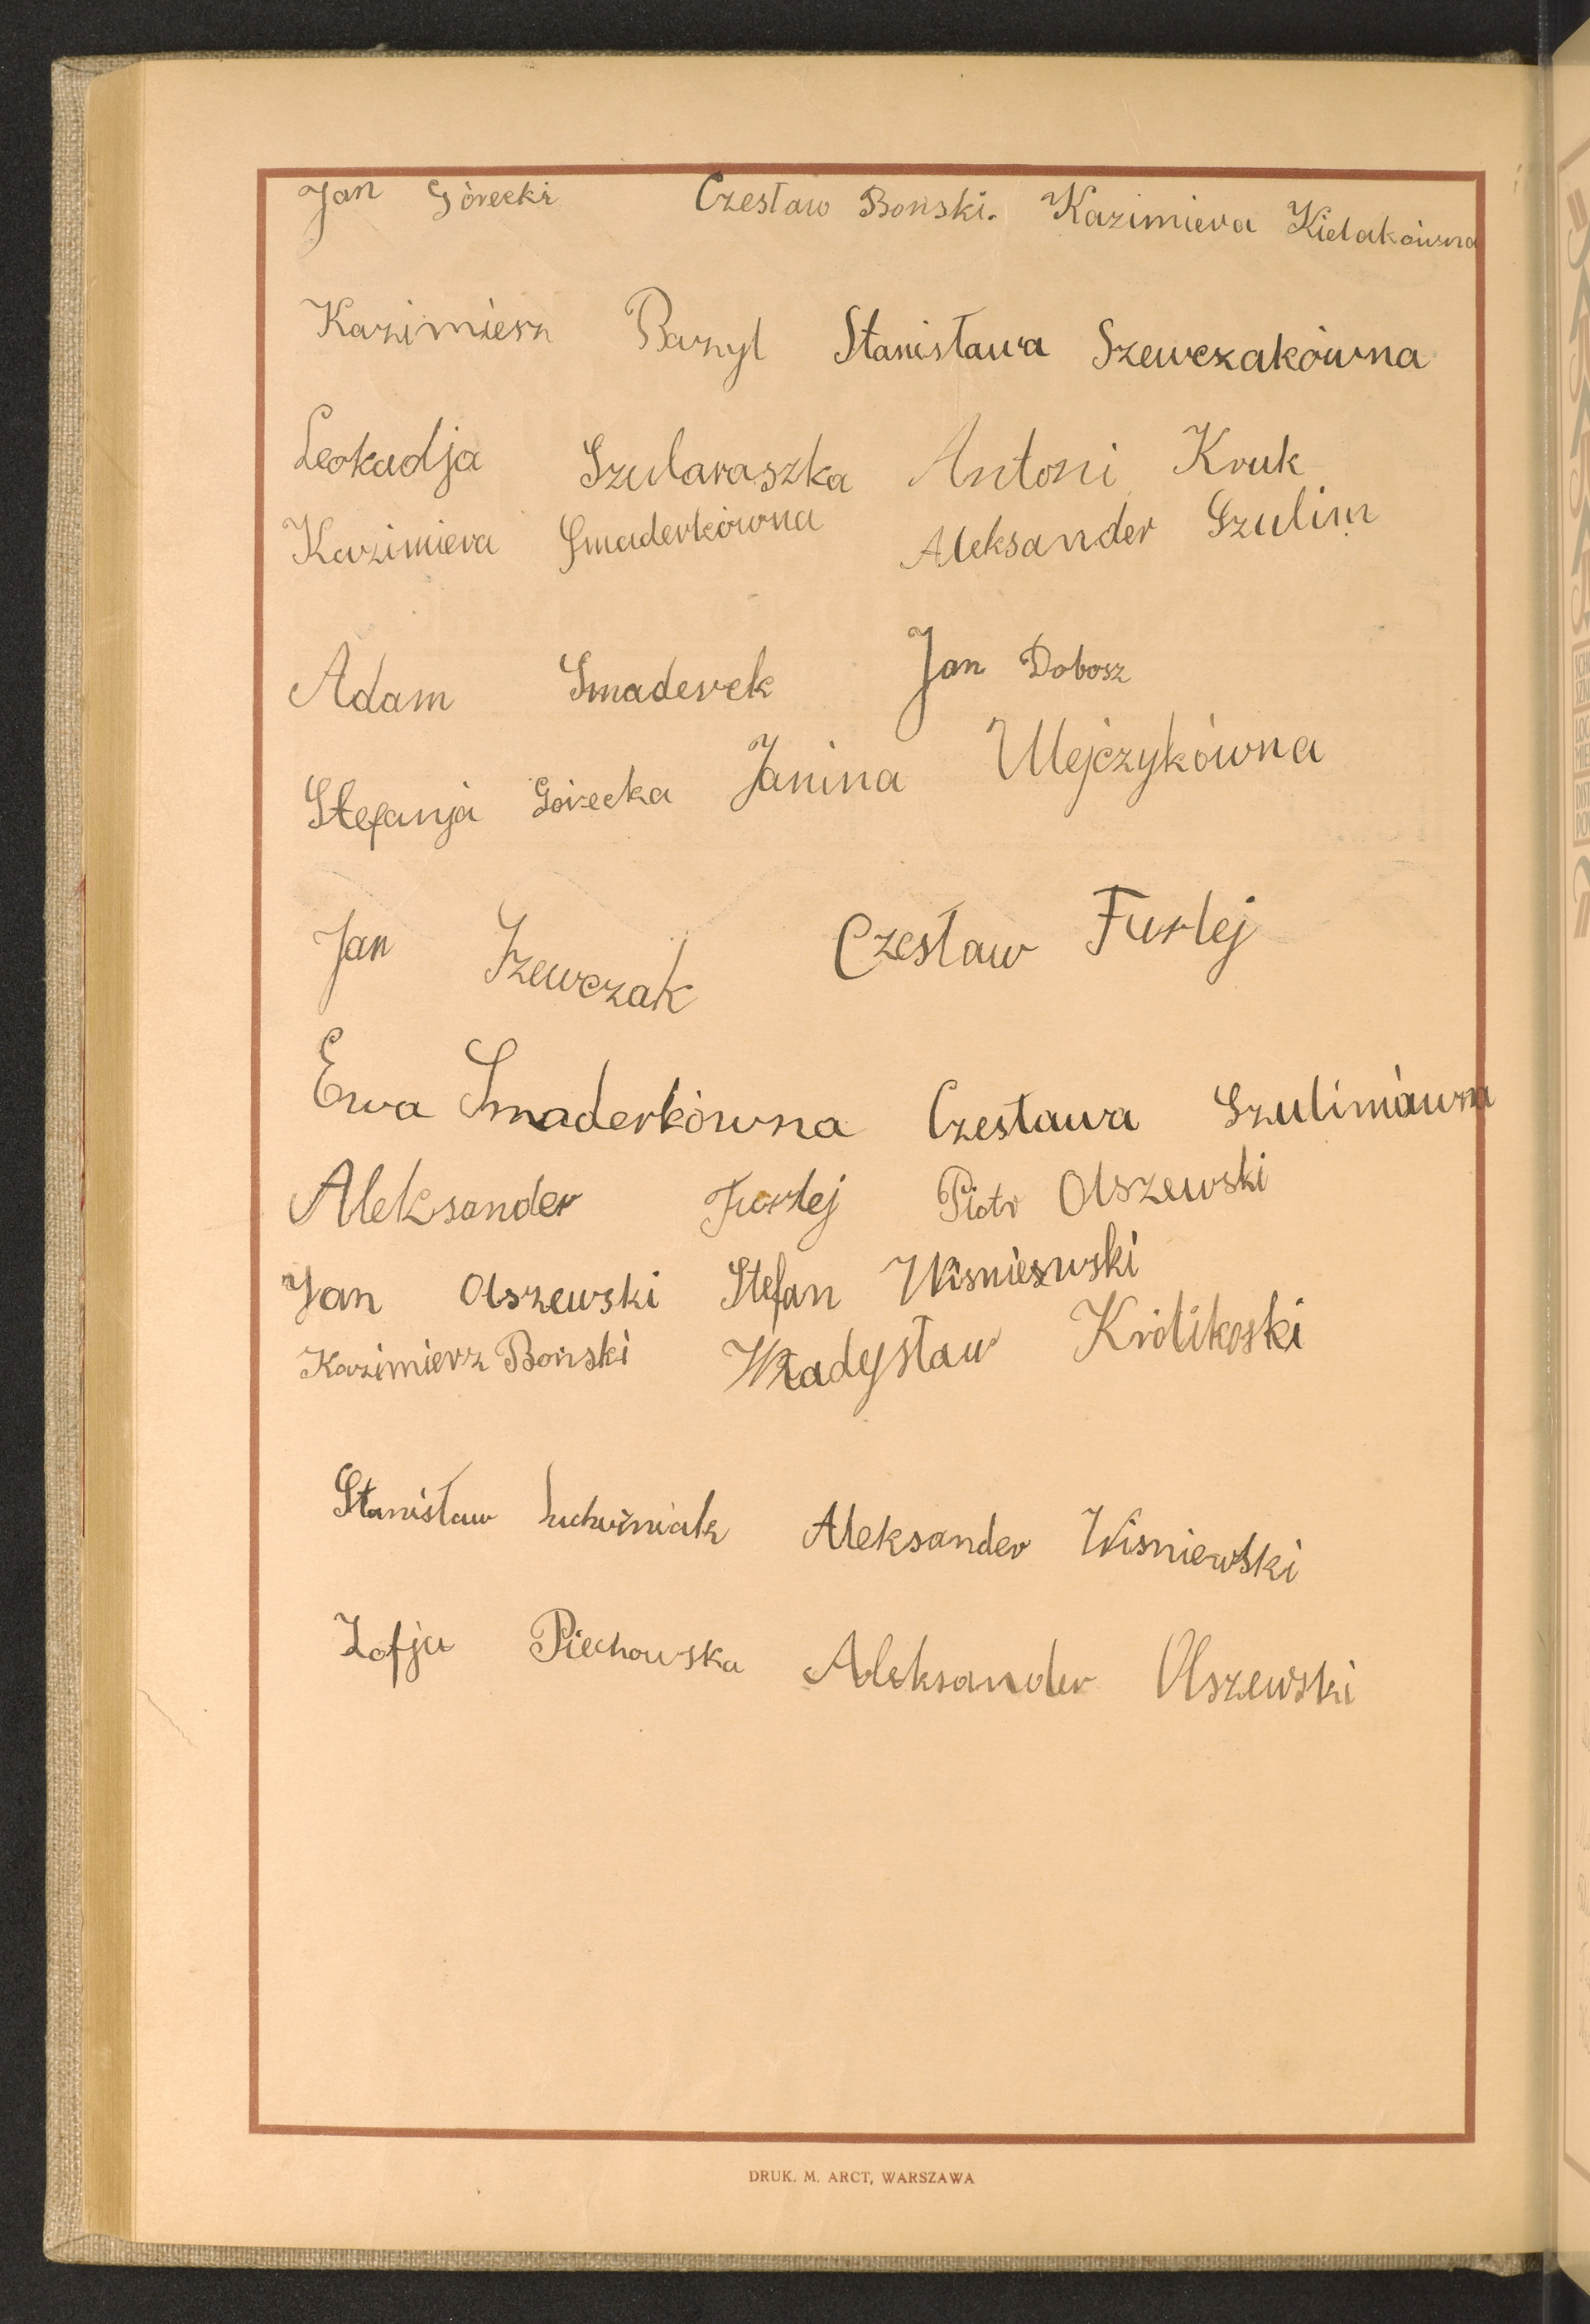 Jan Górecki Czesław Boński. Kazimiera Kielakówna
Kazimiesz Bazyl Stanisława Szewczakówna
Leokadja Szularaszka Antoni Kruk
Kazimiera Smaderkówna Aleksander Szulim
Adam Smaderek Jan Dobosz
Stefanja Górecka Janina Ulejczykówna
Jan Szewczak Czesław Furlej
Ewa Smaderkówna Czesława Szulimówna
Aleksander Furlej Piotr Olszewski
Jan Olszewski Stefan Wisniewski
Kazimierz Boński Władysław Królikoski
Stanisław Aleksander Wisniewski
Zofja Piechowska Aleksander Olszewski
DRUK. M. ARCT, WARSZAWA